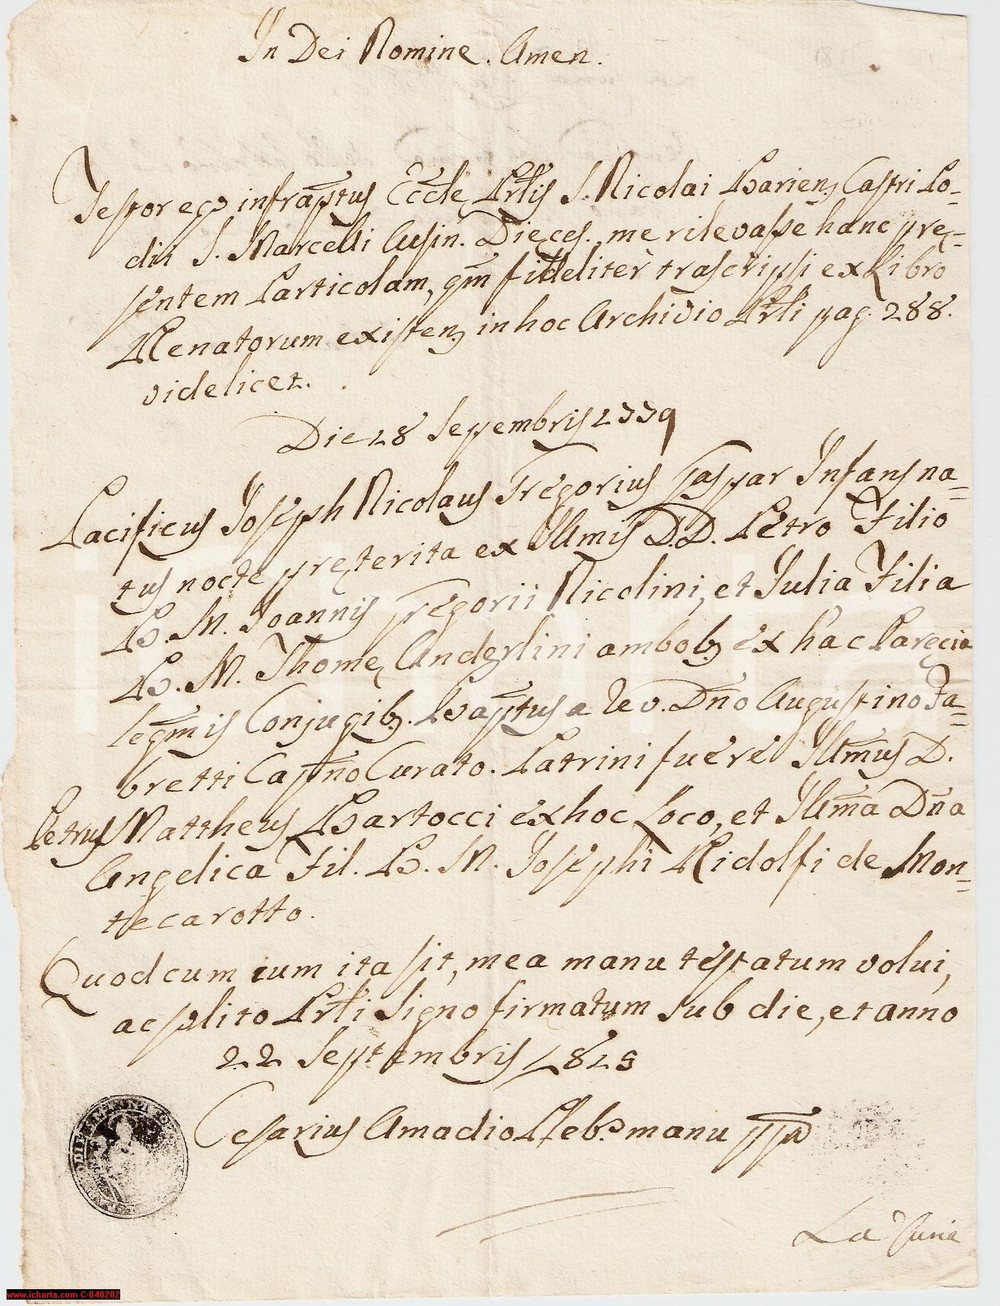 In Dei Nomine. Amen.
Testor ego infraptus Eccle Prlis S. Nicolai Barien, Castri Po-
dii S. Marcelli Auxin. Dieces. me rilevasse hanc præ-
sentem Particolam, qm fideliter trascripsi ex Libro
Renatorum existen, in hoc Archivio Prli pag. 288.
videlicet.
Die 28 Septembris 1779
Pacificus Joseph Nicolaus Gregorius Gaspar Infans na=
tus nocte præterita ex Illmis DD. Petro Filio
B. M. Joannis Gregorii Nicolini, et Julia Filia
B. M. Thomę Anderlini ambob, ex hac Paręcia
legmis Conjugib, Baptus a Rev. Dno Augustino Fa=
bretti Capno Curato. Patrini fuere Illmus D.
Petrus Mattheus Bartocci ex hoc Loco, et Illma Dna
Angelica Fil. B. M. Josephi Ridolfi de Mon=
tecarotto.
Quod cum ita sit, mea manu testatum volui,
ac solito Prli Signo firmatum sub die, et anno
22 Septembris 1825
Cesarius Amadio Pleb.s manu ppa
La Curia
www.icharta.com C-048202
icharta